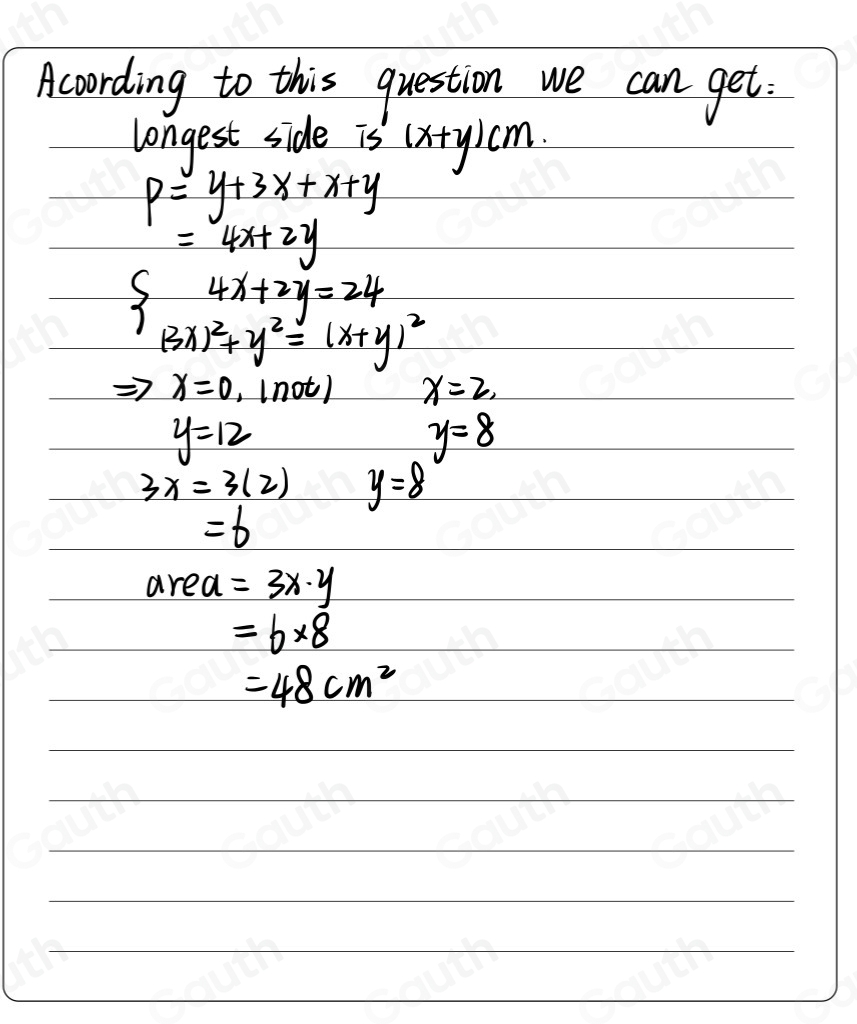 Acoording to this question we can get:
longest side is (x+y)cm.
P= y+3x+x+y
= 4x+2y
{ 4x+2y=24
(3x)²+y²= (x+y)²
=> x=0, (not) x=2,
y=12 y=8
3x = 3(2) y=8
=6
area = 3x·y
= 6×8
=48cm²